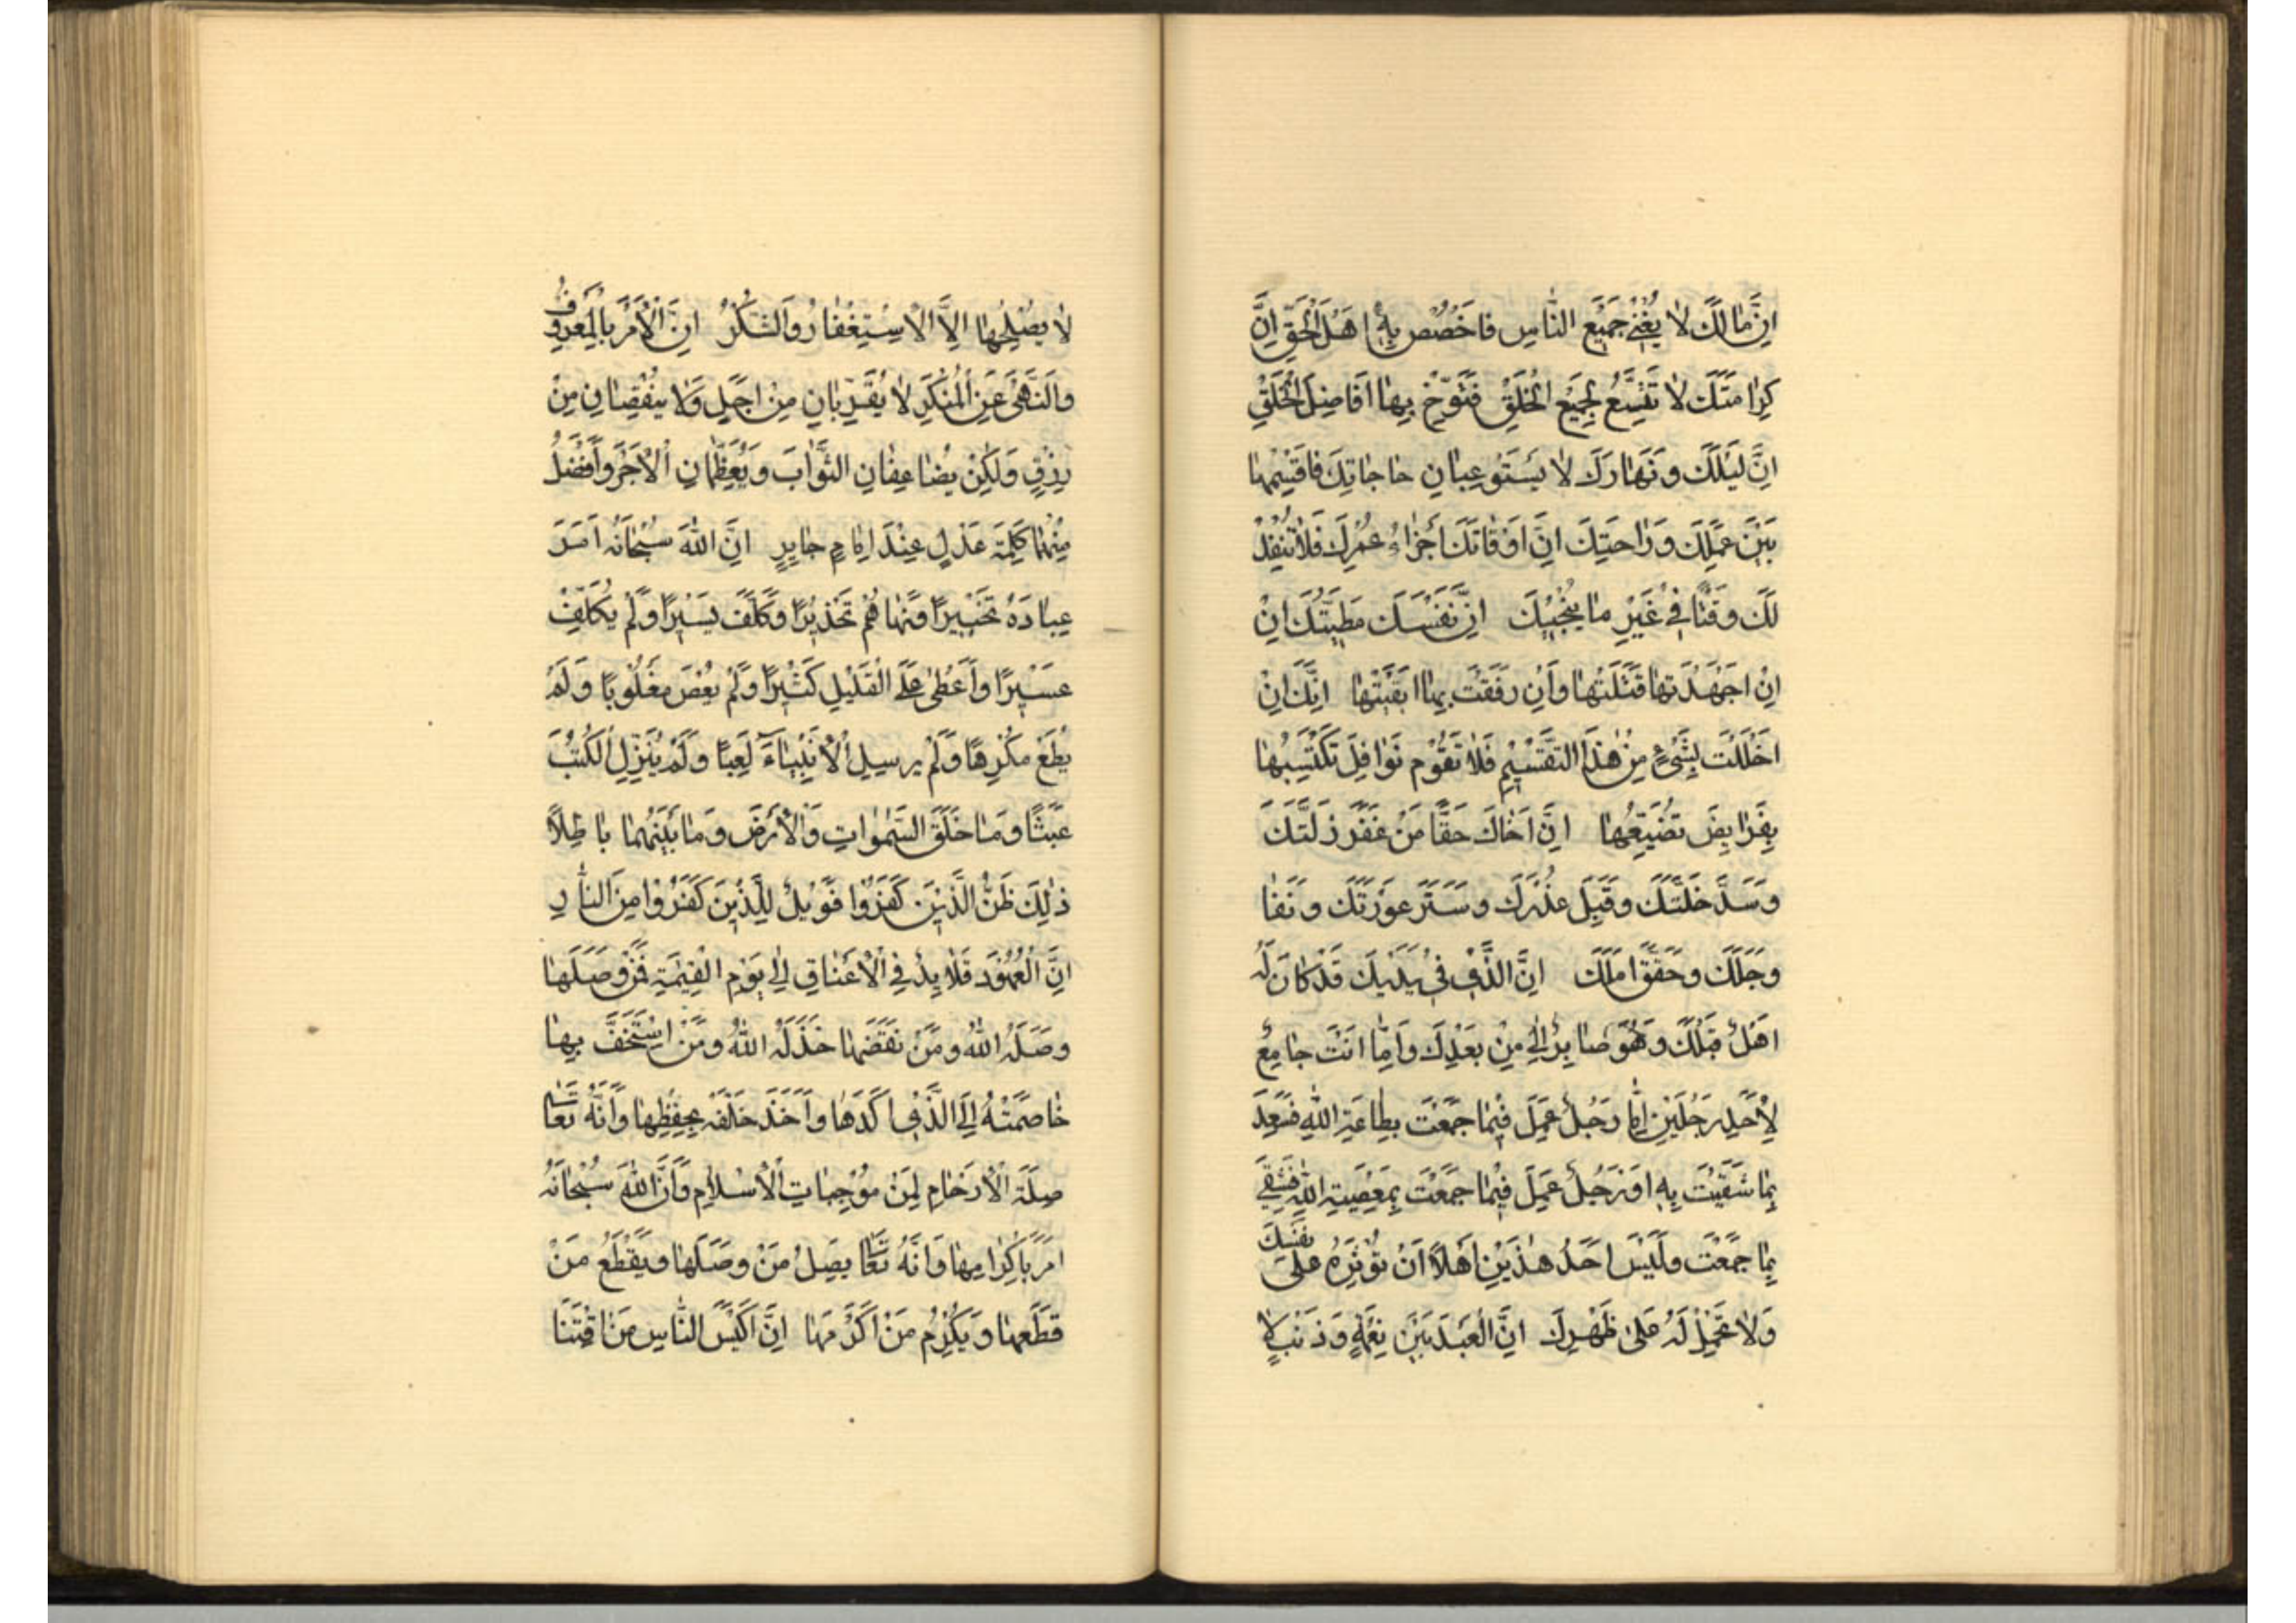 اِنَّ مٰا لَكَ لاٰ يُغْنِي جَمِيْعَ النّٰاسِ فَاخْصُصْ بِهِ اَهْلَ الْحَقِّ اِنَّ
كِرٰامَتَكَ لاٰ تَتَّسِعُ لِجَمِيْعِ الْخَلْقِ فَتَوَخَّ بِهٰا اَفَاضِلَ الْخَلْقِ
اِنَّ لَيْلَكَ وَنَهٰارَكَ لاٰ يَسْتَوْعِبٰانِ حٰاجٰاتِكَ فَاقْسِمْهٰا
بَيْنَ عَمَلِكَ وَرٰاحَتِكَ اِنَّ اَوْقٰاتَكَ اَجْزٰاءُ عُمْرِكَ فَلاٰ تُنْفِدْ
لَكَ وَقْتًا فِي غَيْرِ مٰا يُنْجِيْكَ اِنَّ نَفْسَكَ مَطِيَّتُكَ اِنْ
اِنْ اَجْهَدْتَهٰا قَتَلْتَهٰا وَاِنْ رَفَقْتَ بِهٰا اَبْقَيْتَهٰا اِنَّكَ اِنْ
اَخْلَلْتَ بِشَيْءٍ مِنْ هٰذَا التَّقْسِيْمِ فَلاٰ تَقُوْمُ نَوٰافِلَ تَكْتَسِبُهٰا
بِفَرٰايِضَ تُضَيِّعُهٰا اِنَّ اَخٰاكَ حَقًّا مَنْ غَفَرَ زَلَّتَكَ
وَسَدَّ خَلَّتَكَ وَقَبِلَ عُذْرَكَ وَسَتَرَ عَوْرَتَكَ وَنَفٰا
وَجَلَكَ وَحَقَّقَ اَمَلَكَ اِنَّ الَّذِي فِي يَدَيْكَ قَدْ كٰانَ لَهُ
اَهْلٌ قَبْلَكَ وَهُوَ صٰايِرٌ اِلٰى مِنْ بَعْدِكَ وَاِنَّمٰا اَنْتَ جٰامِعٌ
لِاَحَدِ رَجُلَيْنِ اِمّٰا رَجُلٌ عَمِلَ فِيْمٰا جَمَعْتَ بِطٰاعَةِ اللّٰهِ فَسَعِدَ
بِمٰا شَقَيْتَ بِهِ اَوْ رَجُلٌ عَمِلَ فِيْمٰا جَمَعْتَ بِمَعْصِيَةِ اللّٰهِ فَشَقِيَ
بِمٰا جَمَعْتَ وَلَيْسَ اَحَدُ هٰذَيْنِ اَهْلاً اَنْ تُؤْثِرَهُ عَلٰى نَفْسِكَ
وَلاٰ تَحْمِلْ لَهُ عَلٰى ظَهْرِكَ اِنَّ الْعَبْدَ بَيْنَ نِعْمَةٍ وَذَنْبٍ لاٰ
لاٰ يُصْلِحُهٰا اِلاَّ الْاِسْتِغْفٰارُ وَالشُّكْرُ اِنَّ الْاَمْرَ بِالْمَعْرُوفِ
وَالنَّهْيَ عَنِ الْمُنْكَرِ لاٰ يُقَرِّبٰانِ مِنْ اَجَلٍ وَلاٰ يَنْقُصٰانِ مِنْ
رِزْقٍ وَلٰكِنْ يُضٰاعِفٰانِ الثَّوٰابَ وَيُعَظِّمٰانِ الْاَجْرَ وَاَفْضَلُ
مِنْهُمٰا كَلِمَةُ عَدْلٍ عِنْدَ اِمٰامٍ جٰايِرٍ اِنَّ اللّٰهَ سُبْحٰانَهُ اَمَرَ
عِبٰادَهُ تَخْيِيْرًا وَنَهٰاهُمْ تَحْذِيْرًا وَكَلَّفَ يَسِيْرًا وَلَمْ يُكَلِّفْ
عَسِيْرًا وَاَعْطٰى عَلَى الْقَلِيْلِ كَثِيْرًا وَلَمْ يُعْصَ مَغْلُوبًا وَلَمْ
يُطَعْ مُكْرِهًا وَلَمْ يُرْسِلِ الْاَنْبِيٰاءَ لَعِبًا وَلَمْ يُنَزِّلِ الْكُتُبَ
عَبَثًا وَمٰا خَلَقَ السَّمٰوٰاتِ وَالْاَرْضَ وَمٰا بَيْنَهُمٰا بٰاطِلاً
ذٰلِكَ ظَنُّ الَّذِيْنَ كَفَرُوا فَوَيْلٌ لِلَّذِيْنَ كَفَرُوا مِنَ النّٰارِ
اِنَّ الْعُهُوْدَ قَلاٰيِدُ فِي الْاَعْنٰاقِ اِلٰى يَوْمِ الْقِيٰمَةِ فَمَنْ وَصَلَهٰا
وَصَلَهُ اللّٰهُ وَمَنْ نَقَضَهٰا خَذَلَهُ اللّٰهُ وَمَنْ اسْتَخَفَّ بِهٰا
خٰاصَمَتْهُ اِلَى الَّذِي اَكَّدَهٰا وَاَخَذَ خَلْقَهُ بِحِفْظِهٰا وَاَنَّهُ تَعٰالٰى
صِلَةَ الْاَرْحٰامِ لَمِنْ مُوْجِبٰاتِ الْاِسْلاٰمِ وَاَنَّ اللّٰهَ سُبْحٰانَهُ
اَمَرَ بِاِكْرٰامِهٰا وَاَنَّهُ تَعٰالٰى يَصِلُ مَنْ وَصَلَهٰا وَيَقْطَعُ مَنْ
قَطَعَهٰا وَيُكْرِمُ مَنْ اَكْرَمَهٰا اِنَّ اَكْيَسَ النّٰاسِ مَنْ اقْتَنٰا